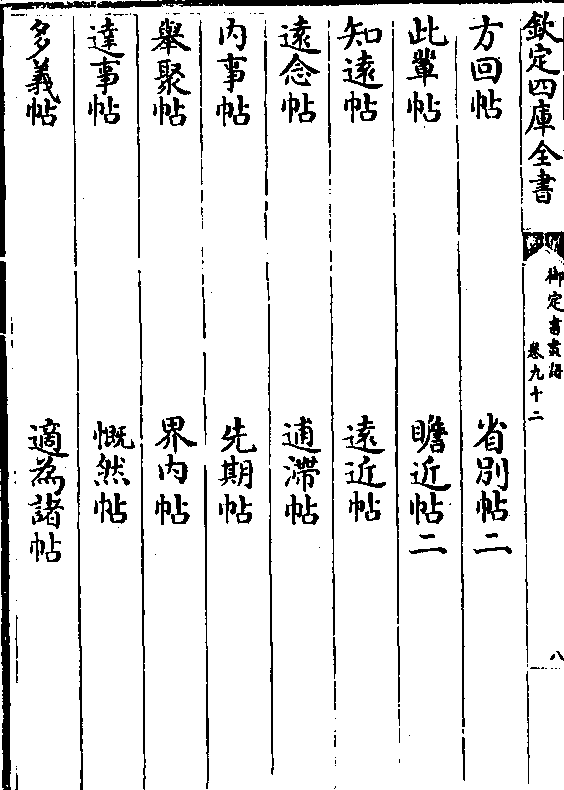 欽定四庫全書
御定書畫譜
卷九十二
八
方回帖 省別帖二
此輩帖 瞻近帖二
知遠帖 遠近帖
遠念帖 逋滯帖
内事帖 先期帖
舉聚帖 界内帖
達事帖 慨然帖
多義帖 適為諸帖